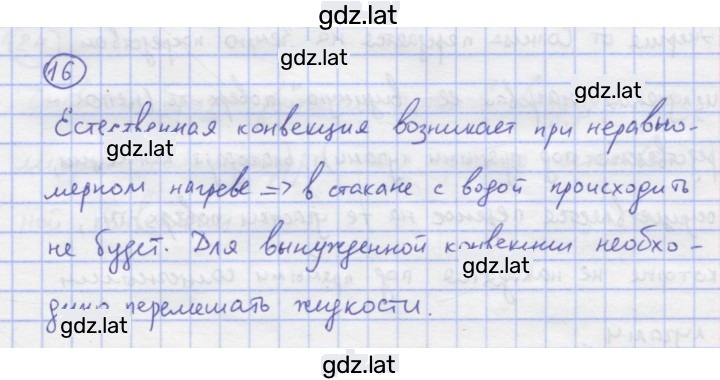 gdz.lat
16
gdz.lat
gdz.lat
Естественная конвекция возникает при неравно-
gdz.lat
мерном нагреве => в стакане с водой происходить
не будет. Для вынужденной конвекции необхо-
gdz.lat
димо перемешать жидкости.
gdz.lat
gdz.lat